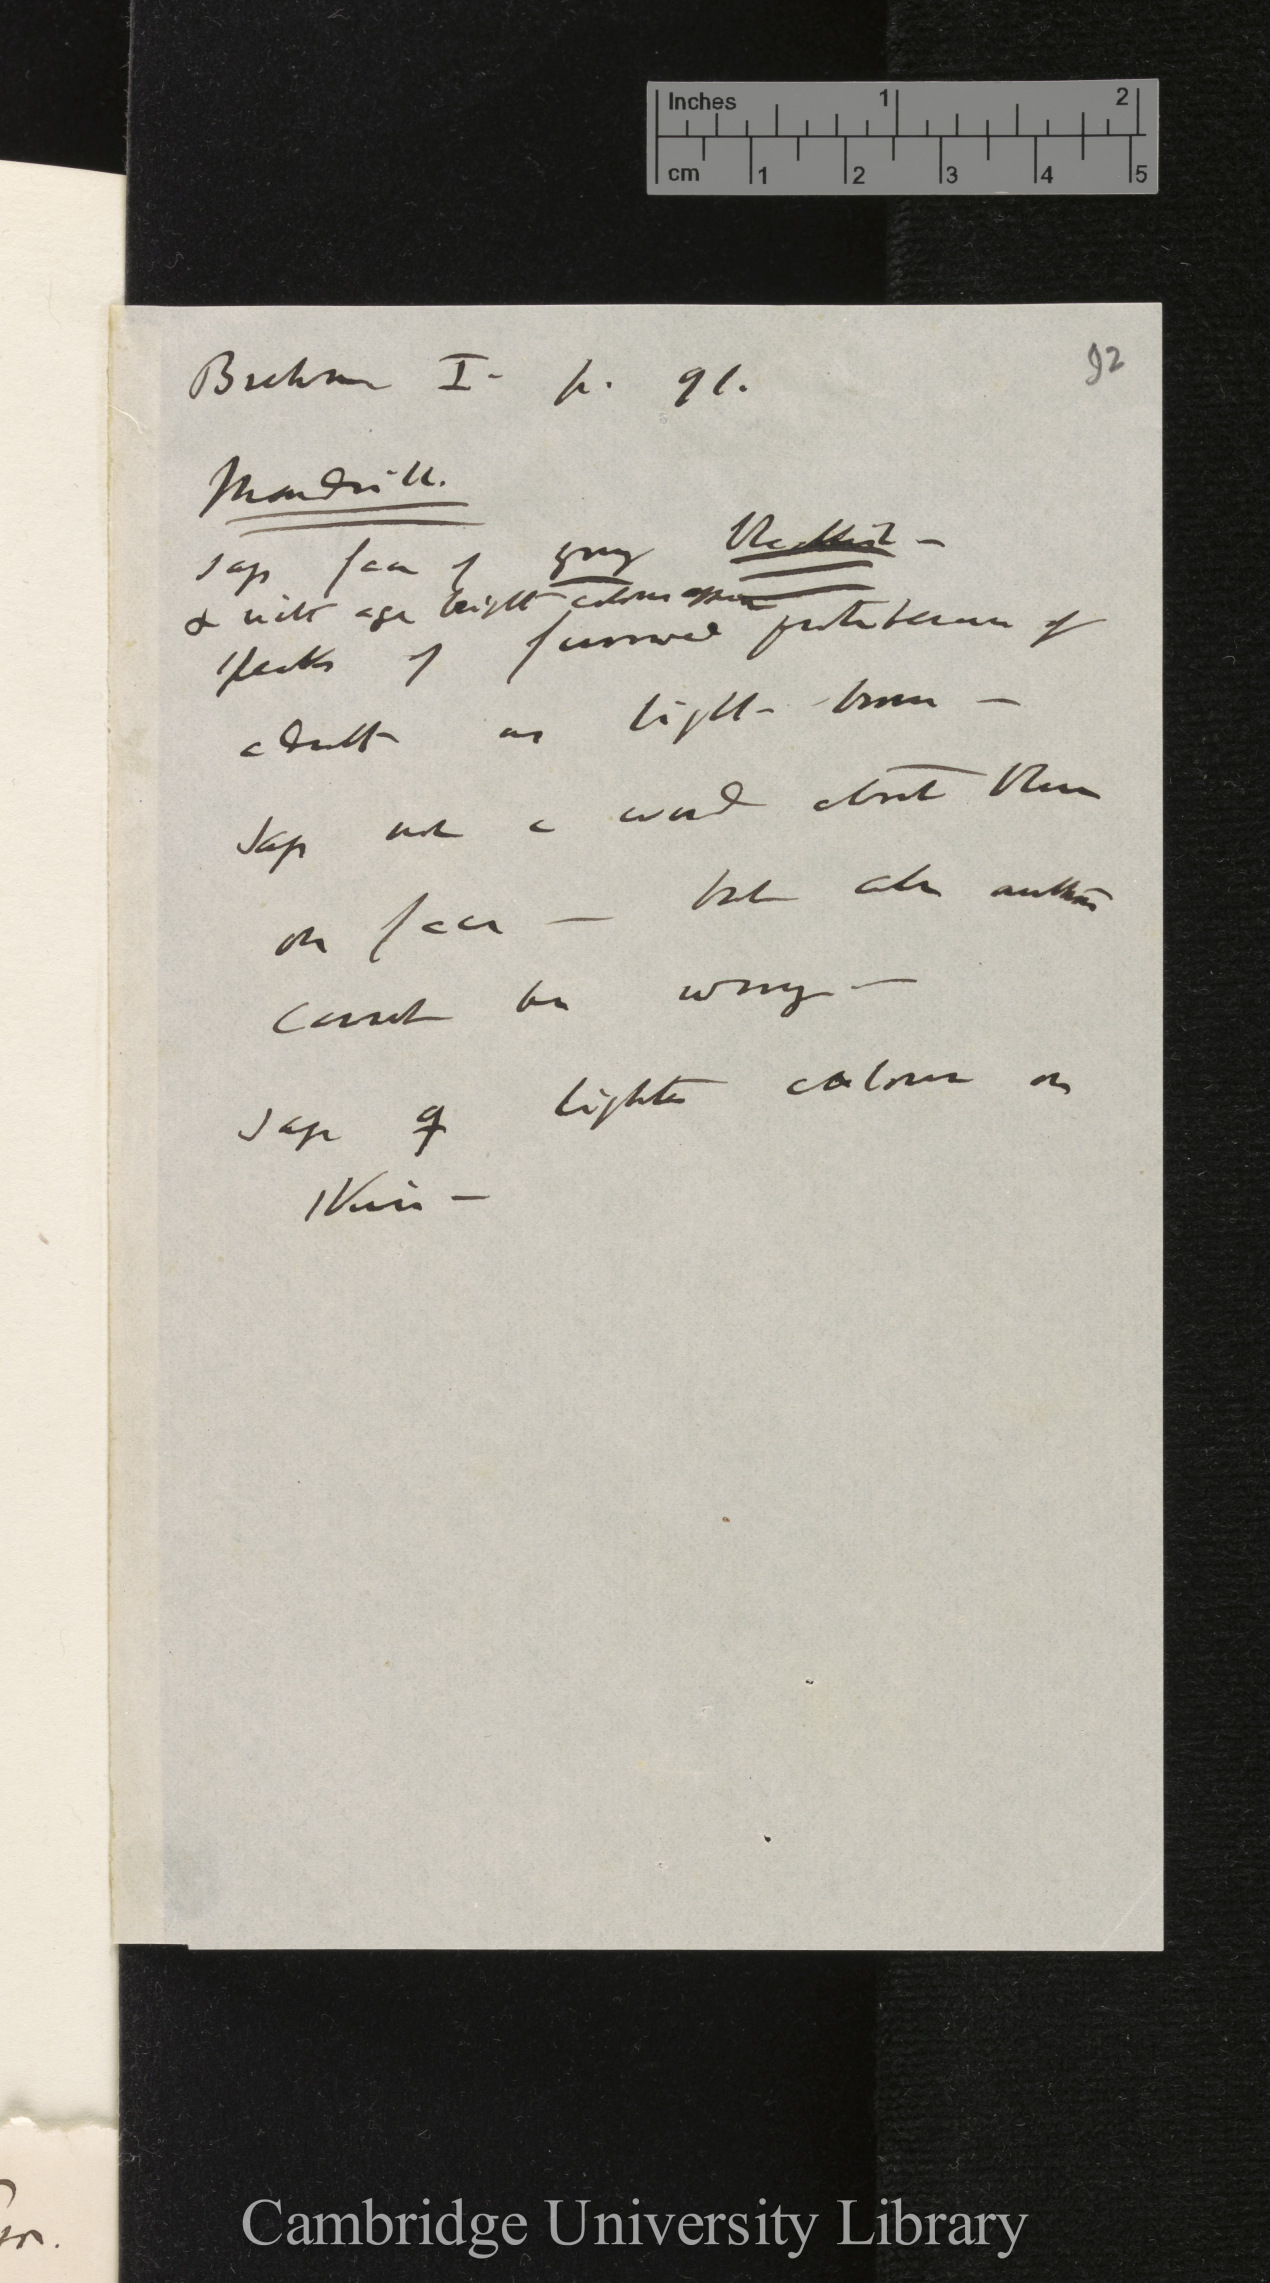 Inches 1 2
cm 1 2 3 4 5
92
Brehm I. p. 91.
Mandrill.
says face of young blackish —
& with age bright colours appear
speaks of furrowed protuberances of
adult as light-brown —
says not a word about them
on face — but other authors
cannot be wrong —
says ♀ lighter colours on
skin —
Cambridge University Library